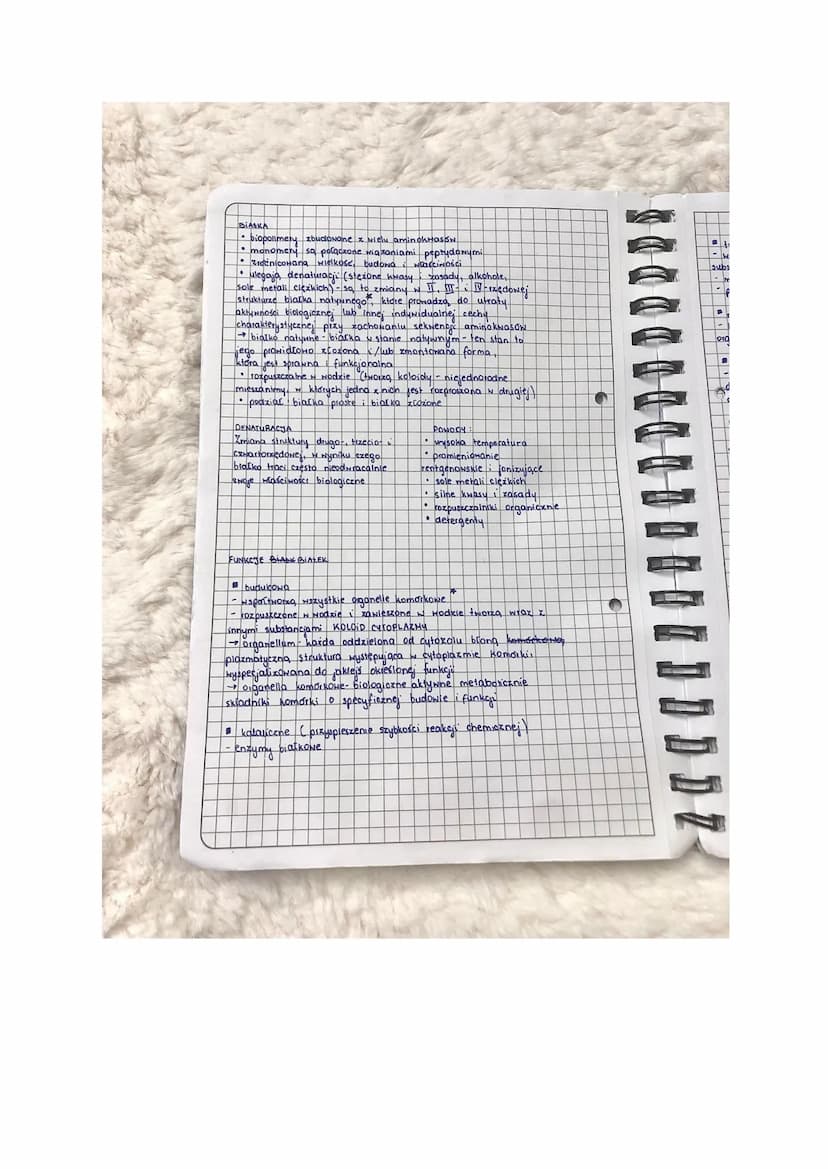 BIAŁKA
• biopolimery zbudowane z wielu aminokwasów
• monomery są połączone wiązaniami peptydowymi
• zróżnicowana wielkość, budowa i właściwości
• ulegają denaturacji (stężone kwasy i zasady, alkohole,
sole metali ciężkich) - są to zmiany w II, III- i IV-rzędowej
strukturze białka natywnego*, które prowadzą do utraty
aktywności biologicznej lub innej indywidualnej cechy
charakterystycznej przy zachowaniu sekwencji aminokwasów
→ białko natywne - białka w stanie natywnym - ten stan to
jego prawidłowo złożona i/lub zmontowana forma,
która jest sprawna i funkcjonalna
• rozpuszczalne w wodzie (tworzą koloidy - niejednorodne
mieszaniny, w których jedna z nich jest rozproszona w drugiej)
• podział: białka proste i białka złożone
DENATURACJA
Zmiana struktury drugo-, trzecio- i
czwartorzędowej, w wyniku czego
białko traci często nieodwracalnie
swoje właściwości biologiczne
POWODY:
• wysoka temperatura
• promieniowanie
rentgenowskie i jonizujące
• sole metali ciężkich
• silne kwasy i zasady
• rozpuszczalniki organiczne
• detergenty
FUNKCJE BIAŁEK
▪ budulcowa
- współtworzą wszystkie organelle komórkowe*
- rozpuszczone w wodzie i zawieszone w wodzie tworzą wraz z
innymi substancjami KOLOID CYTOPLAZMY
→ organellum - każda oddzielona od cytozolu błoną komórkową,
plazmatyczną struktura występująca w cytoplazmie komórki
wyspecjalizowana do jakiejś określonej funkcji
→ organella komórkowe - biologiczne aktywne metabolicznie
składniki komórki o specyficznej budowie i funkcji
▪ katalityczne (przyspieszenie szybkości reakcji chemicznej)
- enzymy białkowe